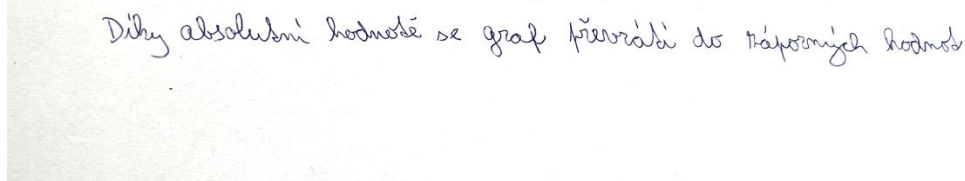 Díky absolutní hodnotě se graf převrátí do záporných hodnot